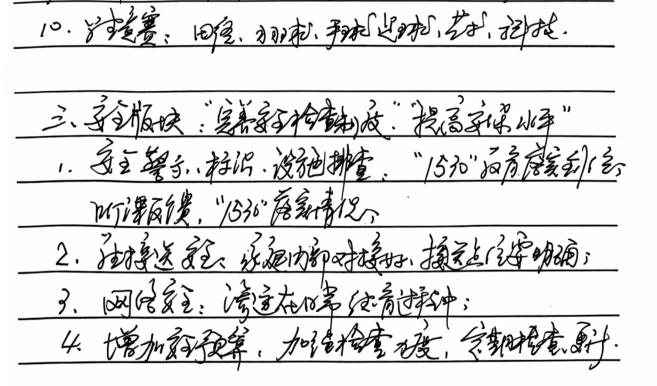 10. 学生竞赛：田径、羽球、手球、足球、艺术、科技.
三、安全版块："完善安全检查制度""提高安保水平"
1. 安全警示、标识、设施排查，"1530"教育落实到位、
听课反馈，"1530"落实情况、
2. 学生接送安全：家庭内部对接好、接送点位要明确；
3. 网络安全：渗透在日常体育过程中；
4. 增加安全预算，加强检查力度，定期检查、更新.